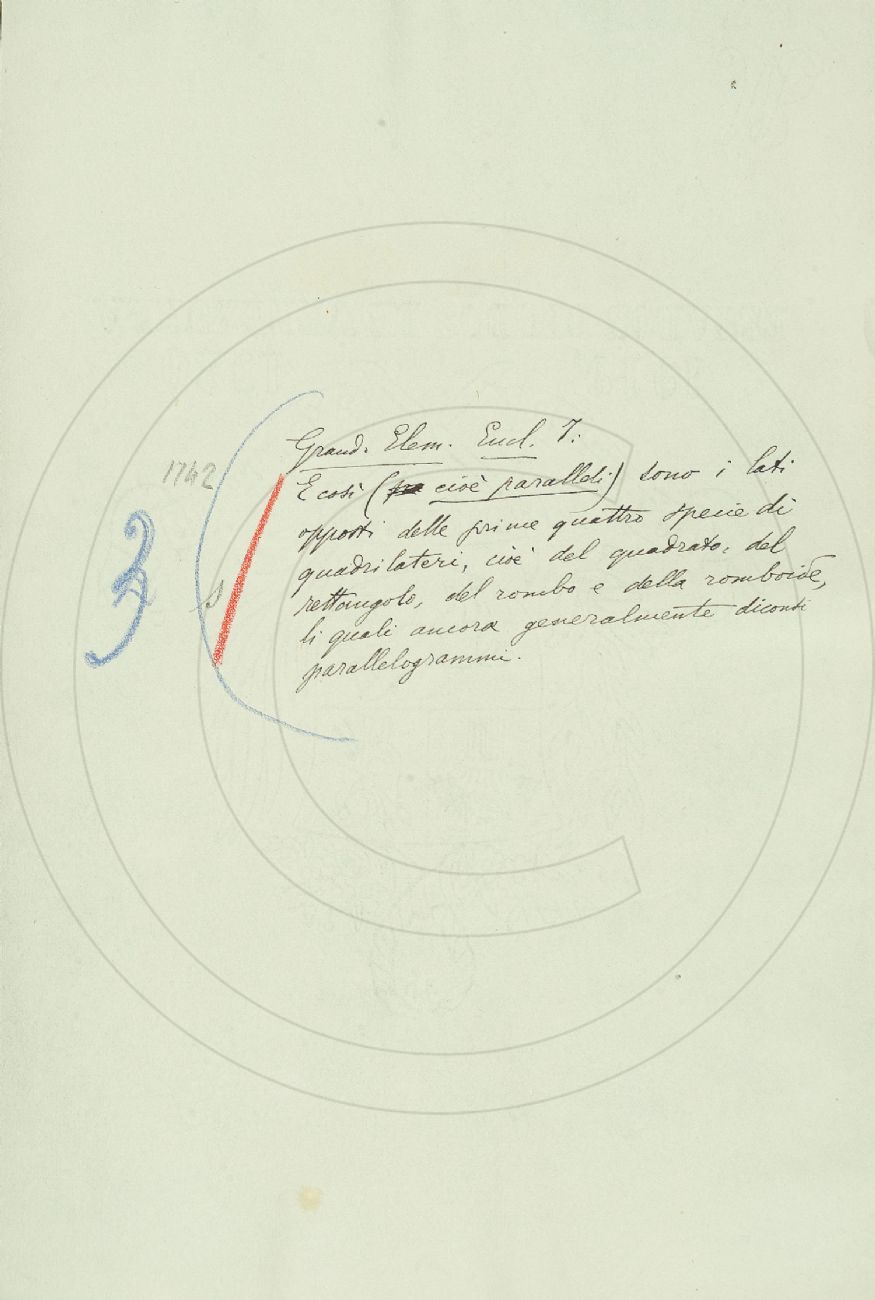 Grand. Elem. Eucl. 7.
1742
E così (cioè paralleli) sono i lati
opposti delle prime quattro specie di
quadrilateri, cioè del quadrato, del
rettangolo, del rombo e della romboide,
li quali ancora generalmente diconsi
parallelogrammi.
3
S